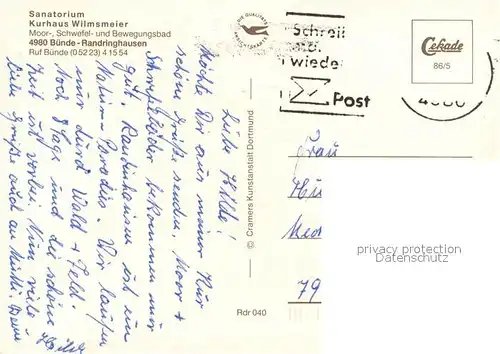 Sanatorium
Kurhaus Wilmsmeier
Moor-, Schwefel- und Bewegungsbad
4980 Bünde - Randringhausen
Ruf Bünde (0 52 23) 4 15 54
Liebe Hilde!
Möchte Dir aus meiner Kur
schöne Grüße senden, Moor +
Schwefelbäder bekommen mir
gut. Randinghausen ist ein
Natur-Paradies. Wir laufen
nur durch Wald + Feld.
Noch 8 Tage und die schöne
Zeit ist vorbei. Nun viele
liebe Grüße auch an Mutti. Deine
© Cramers Kunstanstalt Dortmund
Rdr 040
DIE QUALITÄTS
ANSICHTSKARTE
Schreib
mal
wieder
Post
Cekade
86/5
Frau
79
privacy protection
Datenschutz